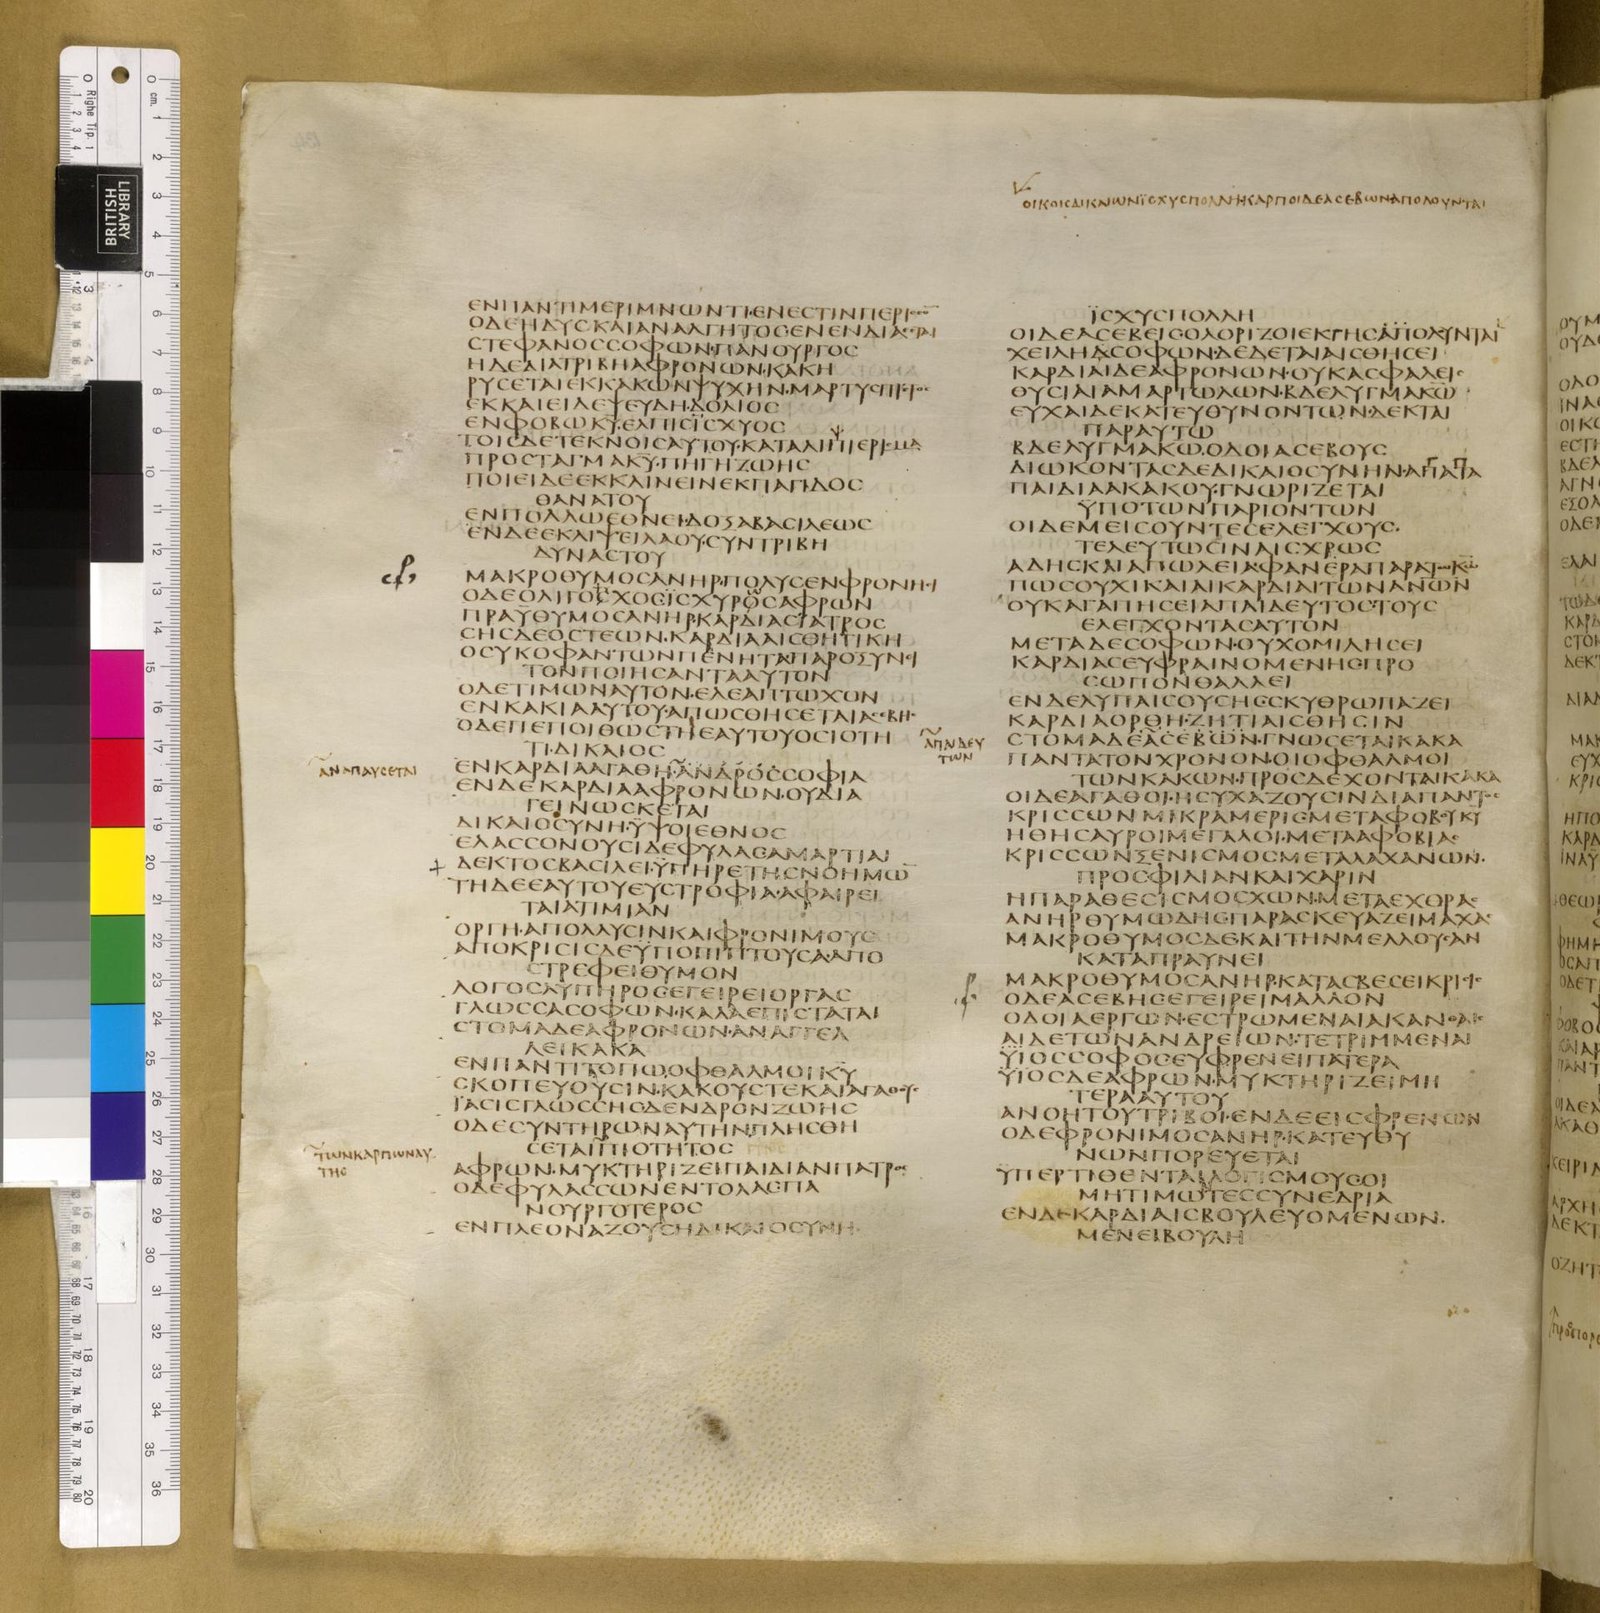 οικοις δικαιων ϊσχυς πολλη καρποι δε ασεβων απολουνται
ΕΝΠΑΝΤΙΜΕΡΙΜΝΩΝΤΙ·ΕΝΕΣΤΙΝΠΕΡΙ
ΟΔΕΗΔΥΣΚΑΙΑΝΑΛΓΗΤΟΣΕΝΕΝΔΙΑ
ΣΤΕΦΑΝΟΣΣΟΦΩΝ·ΠΑΝΟΥΡΓΟΣ
ΗΔΕΔΙΑΤΡΙΒΗΑΦΡΟΝΩΝ·ΚΑΚΗ
ΡΥΣΕΤΑΙΕΚΚΑΚΩΝΨΥΧΗΝ·ΜΑΡΤΥΣΠΙ
ΕΚΚΑΙΕΙΔΕΨΕΥΔΗ·ΔΟΛΙΟΣ
ΕΝΦΟΒΩΚΥ·ΕΛΠΙΣΪΣΧΥΟΣ
ΤΟΙΣΔΕΤΕΚΝΟΙΣΑΥΤΟΥ·ΚΑΤΑΛΙΠΙΕΡΙΣΜΑ
ΠΡΟΣΤΑΓΜΑΚΥ·ΠΗΓΗΖΩΗΣ
ΠΟΙΕΙΔΕΕΚΚΛΙΝΕΙΝΕΚΠΑΓΙΔΟΣ
ΘΑΝΑΤΟΥ
ΕΝΠΟΛΛΩΕΘΝΕΙ·ΔΟΞΑΒΑΣΙΛΕΩΣ
ΕΝΔΕΕΚΛΙΨΕΙΛΑΟΥ·ΣΥΝΤΡΙΒΗ
ΔΥΝΑΣΤΟΥ
ΜΑΚΡΟΘΥΜΟΣΑΝΗΡ·ΠΟΛΥΣΕΝΦΡΟΝΗΣΙ
ΟΔΕΟΛΙΓΟΨΧΟΣΪΣΧΥΡΩΣΑΦΡΩΝ
ΠΡΑΫΘΥΜΟΣΑΝΗΡ·ΚΑΡΔΙΑΣΪΑΤΡΟΣ
ΣΗΣΔΕΟΣΤΕΩΝ·ΚΑΡΔΙΑΑΙΣΘΗΤΙΚΗ
ΟΣΥΚΟΦΑΝΤΩΝΠΕΝΗΤΑ·ΠΑΡΟΞΥΝΙ
ΤΟΝΠΟΙΗΣΑΝΤΑΑΥΤΟΝ
ΟΔΕΤΙΜΩΝΑΥΤΟΝ·ΕΛΕΑΠΤΩΧΟΝ
ΕΝΚΑΚΙΑΑΥΤΟΥ·ΑΠΩΣΘΗΣΕΤΑΙΑΣΕΒΗΣ
ΟΔΕΠΕΠΟΙΘΩΣΤΗΕΑΥΤΟΥΟΣΙΟΤΗ
ΤΙ·ΔΙΚΑΙΟΣ
αναπαυσεται
ΕΝΚΑΡΔΙΑΑΓΑΘΗ·ΑΝΔΡΟΣΣΟΦΙΑ
ΕΝΔΕΚΑΡΔΙΑΑΦΡΟΝΩΝ·ΟΥΔΙΑ
ΓΕΙΝΩΣΚΕΤΑΙ
ΔΙΚΑΙΟΣΥΝΗ·ΫΨΟΙΕΘΝΟΣ
ΕΛΑΣΣΟΝΟΥΣΙΔΕΦΥΛΑΣΑΜΑΡΤΙΑΙ
ΔΕΚΤΟΣΒΑΣΙΛΕΙ·ΫΠΗΡΕΤΗΣΝΟΗΜΩ
ΤΗΔΕΕΑΥΤΟΥΕΥΣΤΡΟΦΙΑ·ΑΦΑΙΡΕΙ
ΤΑΙΑΤΙΜΙΑΝ
ΟΡΓΗ·ΑΠΟΛΛΥΣΙΝΚΑΙΦΡΟΝΙΜΟΥΣ
ΑΠΟΚΡΙΣΙΣΔΕΫΠΟΠΙΠΤΟΥΣΑ·ΑΠΟ
ΣΤΡΕΦΕΙΘΥΜΟΝ
ΛΟΓΟΣΛΥΠΗΡΟΣΕΓΕΙΡΕΙΟΡΓΑΣ
ΓΛΩΣΣΑΣΟΦΩΝ·ΚΑΛΑΕΠΙΣΤΑΤΑΙ
ΣΤΟΜΑΔΕΑΦΡΟΝΩΝ·ΑΝΑΓΓΕΛ
ΛΕΙΚΑΚΑ
ΕΝΠΑΝΤΙΤΟΠΩ·ΟΦΘΑΛΜΟΙΚΥ
ΣΚΟΠΕΥΟΥΣΙΝ·ΚΑΚΟΥΣΤΕΚΑΙΑΓΑΘΟΥΣ
ΪΑΣΙΣΓΛΩΣΣΗΣΔΕΝΔΡΟΝΖΩΗΣ
ΟΔΕΣΥΝΤΗΡΩΝΑΥΤΗΝΠΛΗΣΘΗ
των καρπων αυ
της
ΣΕΤΑΙΠΙΟΤΗΤΟΣ
ΑΦΡΩΝ·ΜΥΚΤΗΡΙΖΕΙΠΑΙΔΙΑΝΠΑΤΡΟΣ
ΟΔΕΦΥΛΑΣΣΩΝΕΝΤΟΛΑΣΠΑ
ΝΟΥΡΓΟΤΕΡΟΣ
ΕΝΠΛΕΟΝΑΖΟΥΣΗΔΙΚΑΙΟΣΥΝΗ
ΪΣΧΥΣΠΟΛΛΗ
ΟΙΔΕΑΣΕΒΕΙΣΟΛΟΡΙΖΟΙΕΚΓΗΣΑΠΟΛΟΥΝΤΑΙ
ΧΕΙΛΗΔΣΟΦΩΝ·ΔΕΔΕΤΑΙΑΙΣΘΗΣΕΙ
ΚΑΡΔΙΑΙΔΕΑΦΡΟΝΩΝ·ΟΥΚΑΣΦΑΛΕΙΣ
ΘΥΣΙΑΙΑΜΑΡΤΩΛΩΝ·ΒΔΕΛΥΓΜΑΚΩ
ΕΥΧΑΙΔΕΚΑΤΕΥΘΥΝΟΝΤΩΝ·ΔΕΚΤΑΙ
ΠΑΡΑΥΤΩ
ΒΔΕΛΥΓΜΑΚΩ·ΟΔΟΙΑΣΕΒΟΥΣ
ΔΙΩΚΟΝΤΑΣΔΕΔΙΚΑΙΟΣΥΝΗΝ·ΑΓΑΠΑ
ΠΑΙΔΙΑΑΚΑΚΟΥ·ΓΝΩΡΙΖΕΤΑΙ
ΫΠΟΤΩΝΠΑΡΙΟΝΤΩΝ
ΟΙΔΕΜΕΙΣΟΥΝΤΕΣΕΛΕΓΧΟΥΣ·
ΤΕΛΕΥΤΩΣΙΝΑΙΣΧΡΩΣ
ΑΔΗΣΚΑΙΑΠΩΛΕΙΑ·ΦΑΝΕΡΑΠΑΡΑΤΩΚΩ
ΠΩΣΟΥΧΙΚΑΙΑΙΚΑΡΔΙΑΙΤΩΝΑΝΩΝ
ΟΥΚΑΓΑΠΗΣΕΙΑΠΑΙΔΕΥΤΟΣΤΟΥΣ
ΕΛΕΓΧΟΝΤΑΣΑΥΤΟΝ
ΜΕΤΑΔΕΣΟΦΩΝ·ΟΥΧΟΜΙΛΗΣΕΙ
ΚΑΡΔΙΑΣΕΥΦΡΑΙΝΟΜΕΝΗΣΠΡΟ
ΣΩΠΟΝΘΑΛΛΕΙ
ΕΝΔΕΛΥΠΑΙΣΟΥΣΗΣΣΚΥΘΡΩΠΑΖΕΙ
ΚΑΡΔΙΑΟΡΘΗ·ΖΗΤΙΑΙΣΘΗΣΙΝ
απαιδευ
των
ΣΤΟΜΑΔΕΑΣΕΒΩΝ·ΓΝΩΣΕΤΑΙΚΑΚΑ
ΠΑΝΤΑΤΟΝΧΡΟΝΟΝ·ΟΙΟΦΘΑΛΜΟΙ
ΤΩΝΚΑΚΩΝ·ΠΡΟΣΔΕΧΟΝΤΑΙΚΑΚΑ
ΟΙΔΕΑΓΑΘΟΙ·ΗΣΥΧΑΖΟΥΣΙΝΔΙΑΠΑΝΤΟΣ
ΚΡΙΣΣΩΝΜΙΚΡΑΜΕΡΙΣΜΕΤΑΦΟΒΟΥΚΥ
ΗΘΗΣΑΥΡΟΙΜΕΓΑΛΟΙ·ΜΕΤΑΑΦΟΒΙΑΣ
ΚΡΙΣΣΩΝΞΕΝΙΣΜΟΣΜΕΤΑΛΑΧΑΝΩΝ·
ΠΡΟΣΦΙΛΙΑΝΚΑΙΧΑΡΙΝ
ΗΠΑΡΑΘΕΣΙΣΜΟΣΧΩΝ·ΜΕΤΑΕΧΘΡΑΣ
ΑΝΗΡΘΥΜΩΔΗΣΠΑΡΑΣΚΕΥΑΖΕΙΜΑΧΑΣ
ΜΑΚΡΟΘΥΜΟΣΔΕΚΑΙΤΗΝΜΕΛΛΟΥΣΑΝ
ΚΑΤΑΠΡΑΥΝΕΙ
ΜΑΚΡΟΘΥΜΟΣΑΝΗΡ·ΚΑΤΑΣΒΕΣΕΙΚΡΙΣΙΣ
ΟΔΕΑΣΕΒΗΣΕΓΕΙΡΕΙΜΑΛΛΟΝ
ΟΔΟΙΑΕΡΓΩΝ·ΕΣΤΡΩΜΕΝΑΙΑΚΑΝΘΑΙΣ
ΑΙΔΕΤΩΝΑΝΔΡΕΙΩΝ·ΤΕΤΡΙΜΜΕΝΑΙ
ΫΙΟΣΣΟΦΟΣΕΥΦΡΕΝΕΙΠΑΤΕΡΑ
ΫΙΟΣΔΕΑΦΡΩΝ·ΜΥΚΤΗΡΙΖΕΙΜΗ
ΤΕΡΑΑΥΤΟΥ
ΑΝΟΗΤΟΥΤΡΙΒΟΙ·ΕΝΔΕΕΙΣΦΡΕΝΩΝ
ΟΔΕΦΡΟΝΙΜΟΣΑΝΗΡ·ΚΑΤΕΥΘΥ
ΝΩΝΠΟΡΕΥΕΤΑΙ
ΫΠΕΡΤΙΘΕΝΤΑΙΛΟΓΙΣΜΟΥΣΟΙ
ΜΗΤΙΜΩΤΕΣΣΥΝΕΔΡΙΑ
ΕΝΔΕΚΑΡΔΙΑΙΣΒΟΥΛΕΥΟΜΕΝΩΝ·
ΜΕΝΕΙΒΟΥΛΗ
BRITISH
LIBRARY